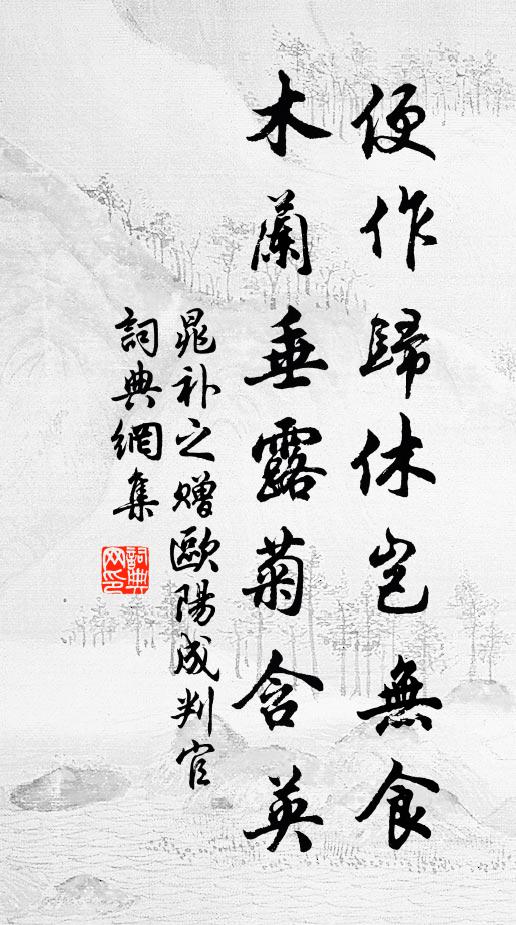 便作歸休豈無食
木蘭垂露菊含英
晁补之贈歐陽成判官
詞典網集
詞典网印